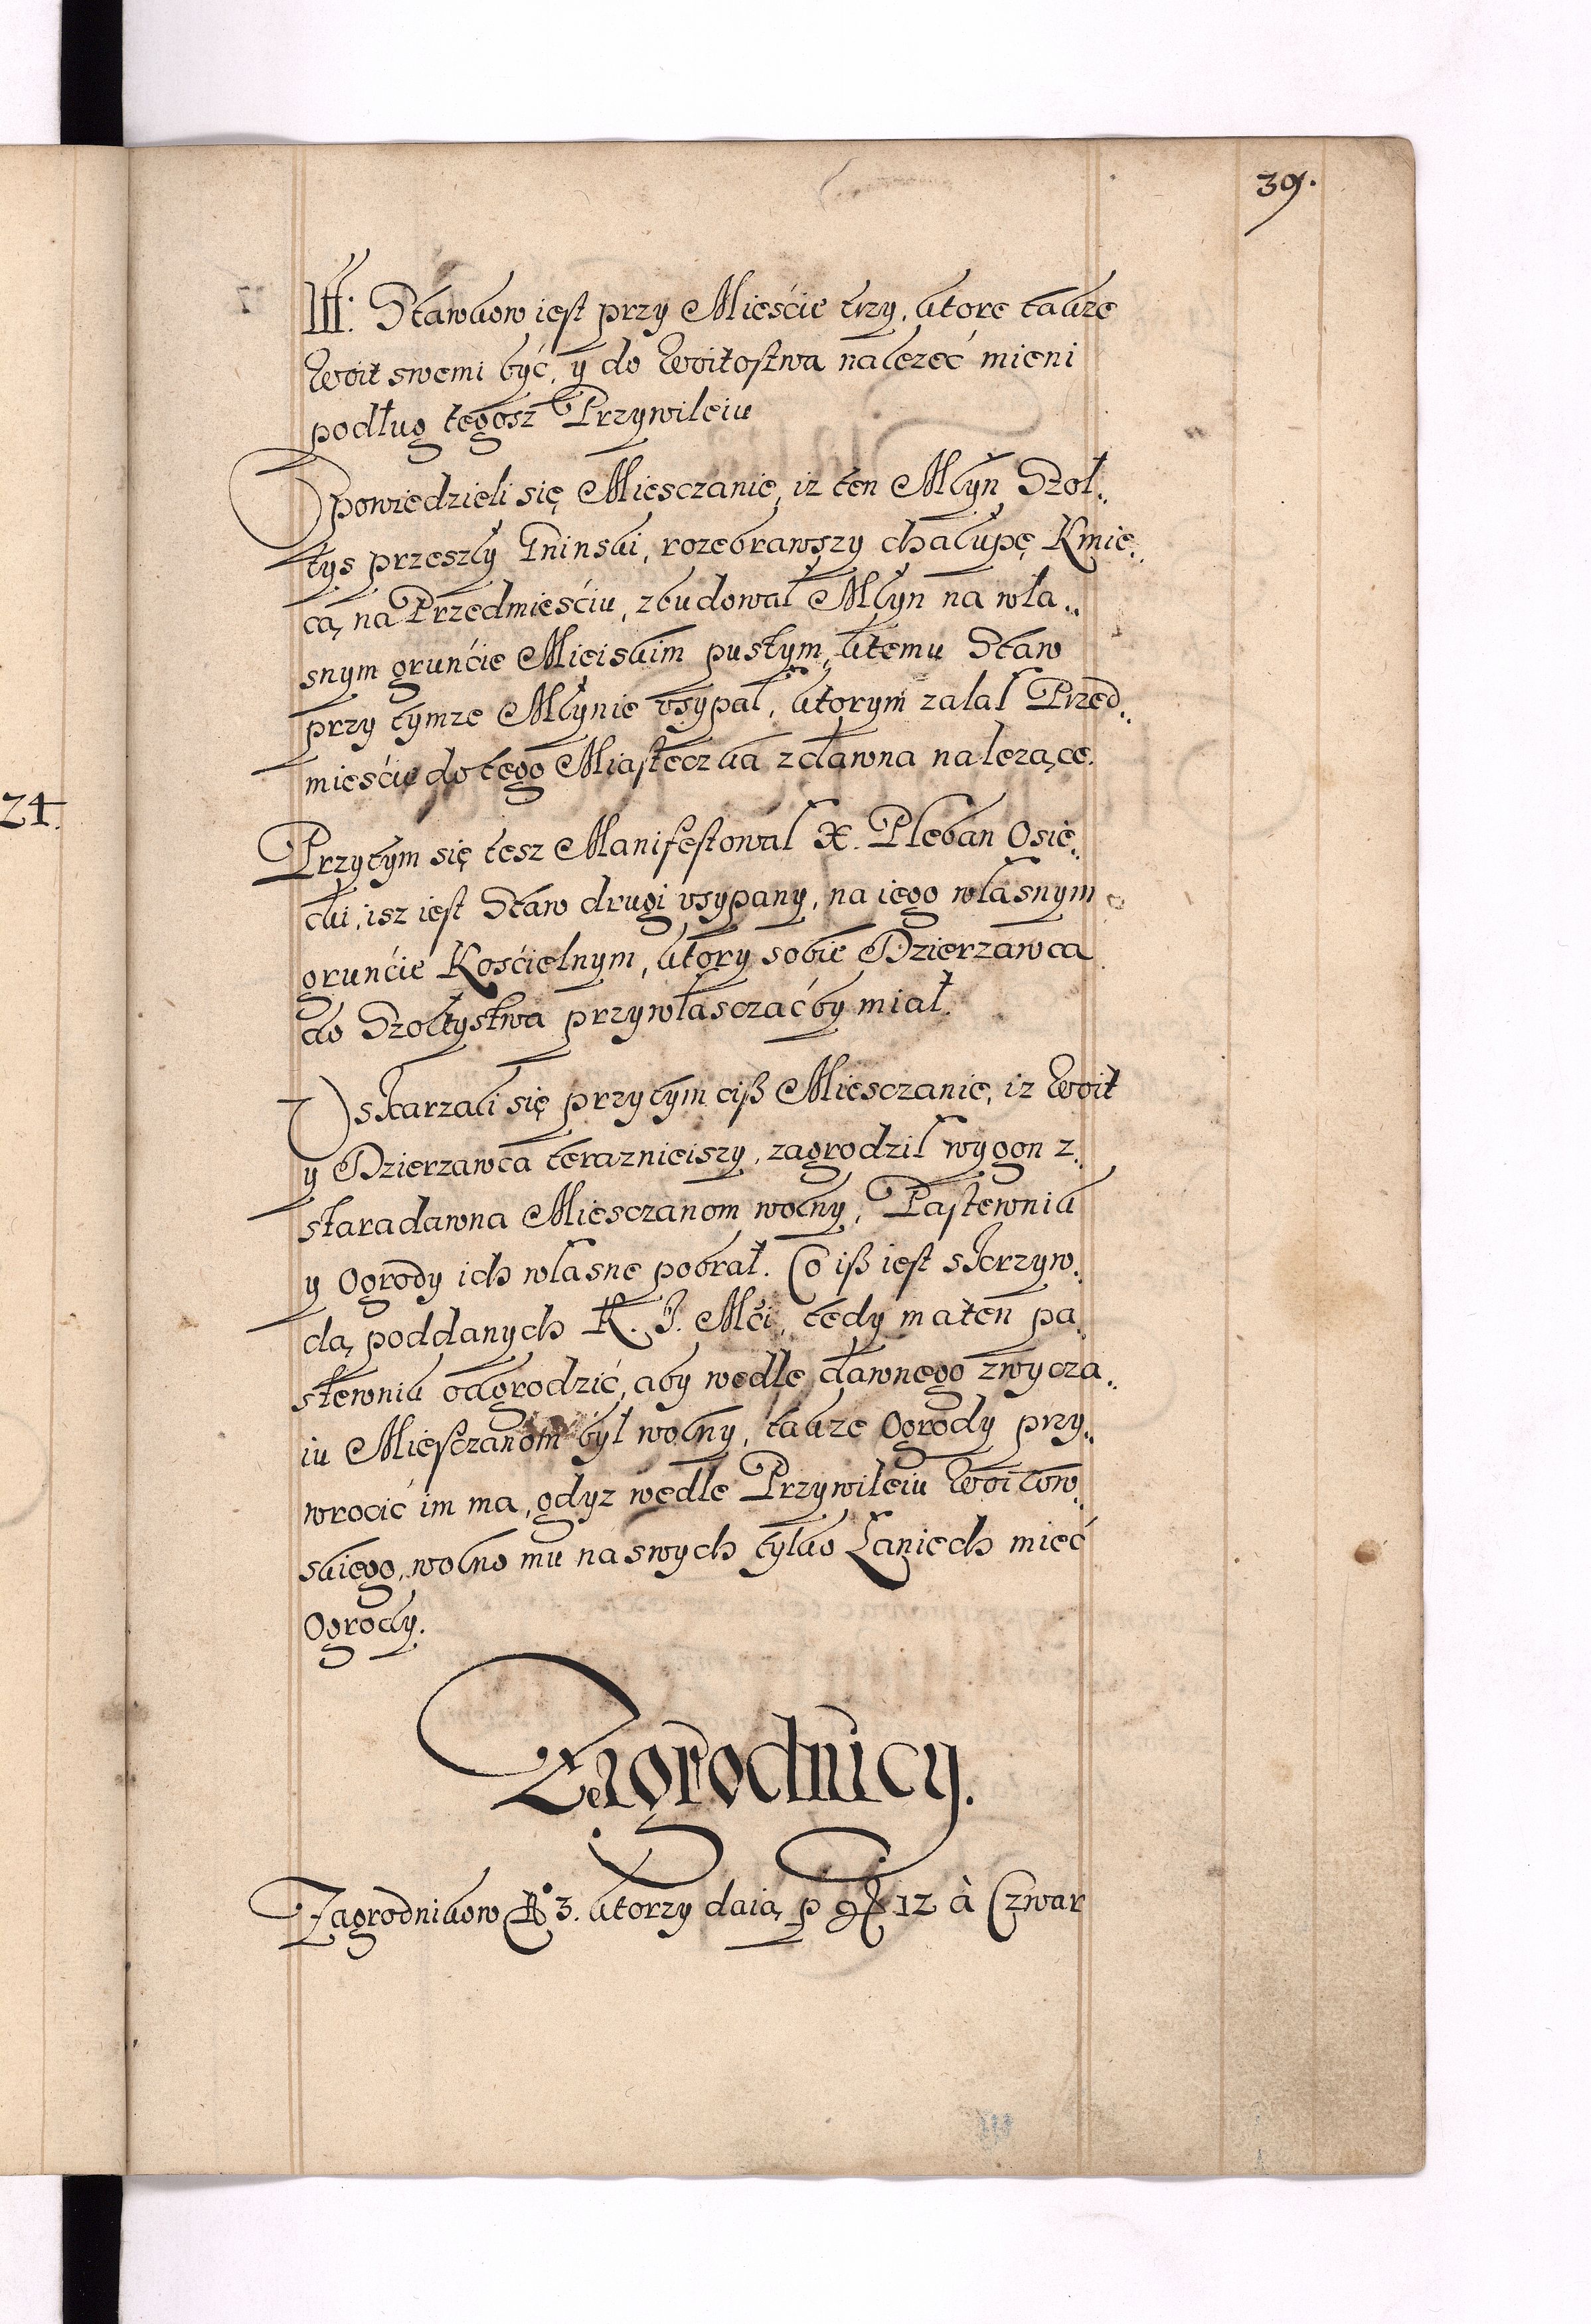 39.
Itt: Stawkow iest przy Mieście trzy, ktore takze
Woit swemi być, y do Woitostwa nalezeć mieni
podług tegosz Przywileiu
Opowiedzieli się Miesczanie, iz ten Młyn Szoł„
tys przeszły Gninski, rozebrawszy chałupę Kmie„
cą, na Przedmieściu, zbudował Młyn na wła„
snym gruńcie Mieiskim pustym, ktemu Staw
przy tymze Młynie vsypał, ktorym zalał Przed„
mieście do tego Miasteczka zdawna nalezące.
24.
Przytym się tesz Manifestował X. Pleban Osie„
cki, isz iest Staw drugi vsypany, na iego własnym
gruńcie Kościelnym, ktory sobie Dzierzawca
do Szołtystwa przywłasczać by miał.
Uskarzali się przytym ciß Miesczanie, iz Woit
y Dzierzawca teraznieiszy, zagrodził wygon z„
staradawna Miesczanom wolny, Pastewnik
y Ogrody ich własne pobrał. Co iß iest s krzyw„
dą, poddanych K. J. Mci, tedy ma ten pa„
stewnik odgrodzić, aby wedle dawnego zwycza„
iu Miesczanom był wolny, takze Ogrody przy„
wrocić im ma, gdyz wedle Przywileiu Woitow„
skiego, wolno mu na swych tylko Łaniech mieć
Ogrody.
Zagrodnicy.
Zagrodnikow No 3. ktorzy daią p gr 12 à Czwar